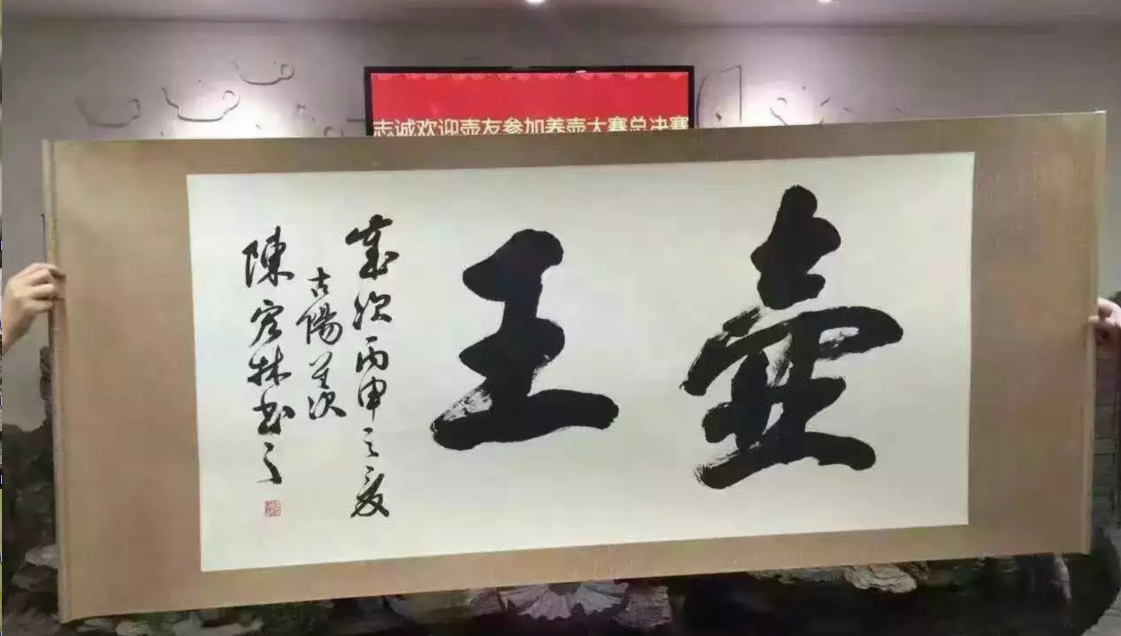 志诚欢迎壶友参加养壶大赛总决赛
壶王
歲次丙申之夏
古陽羨次
陳林书之